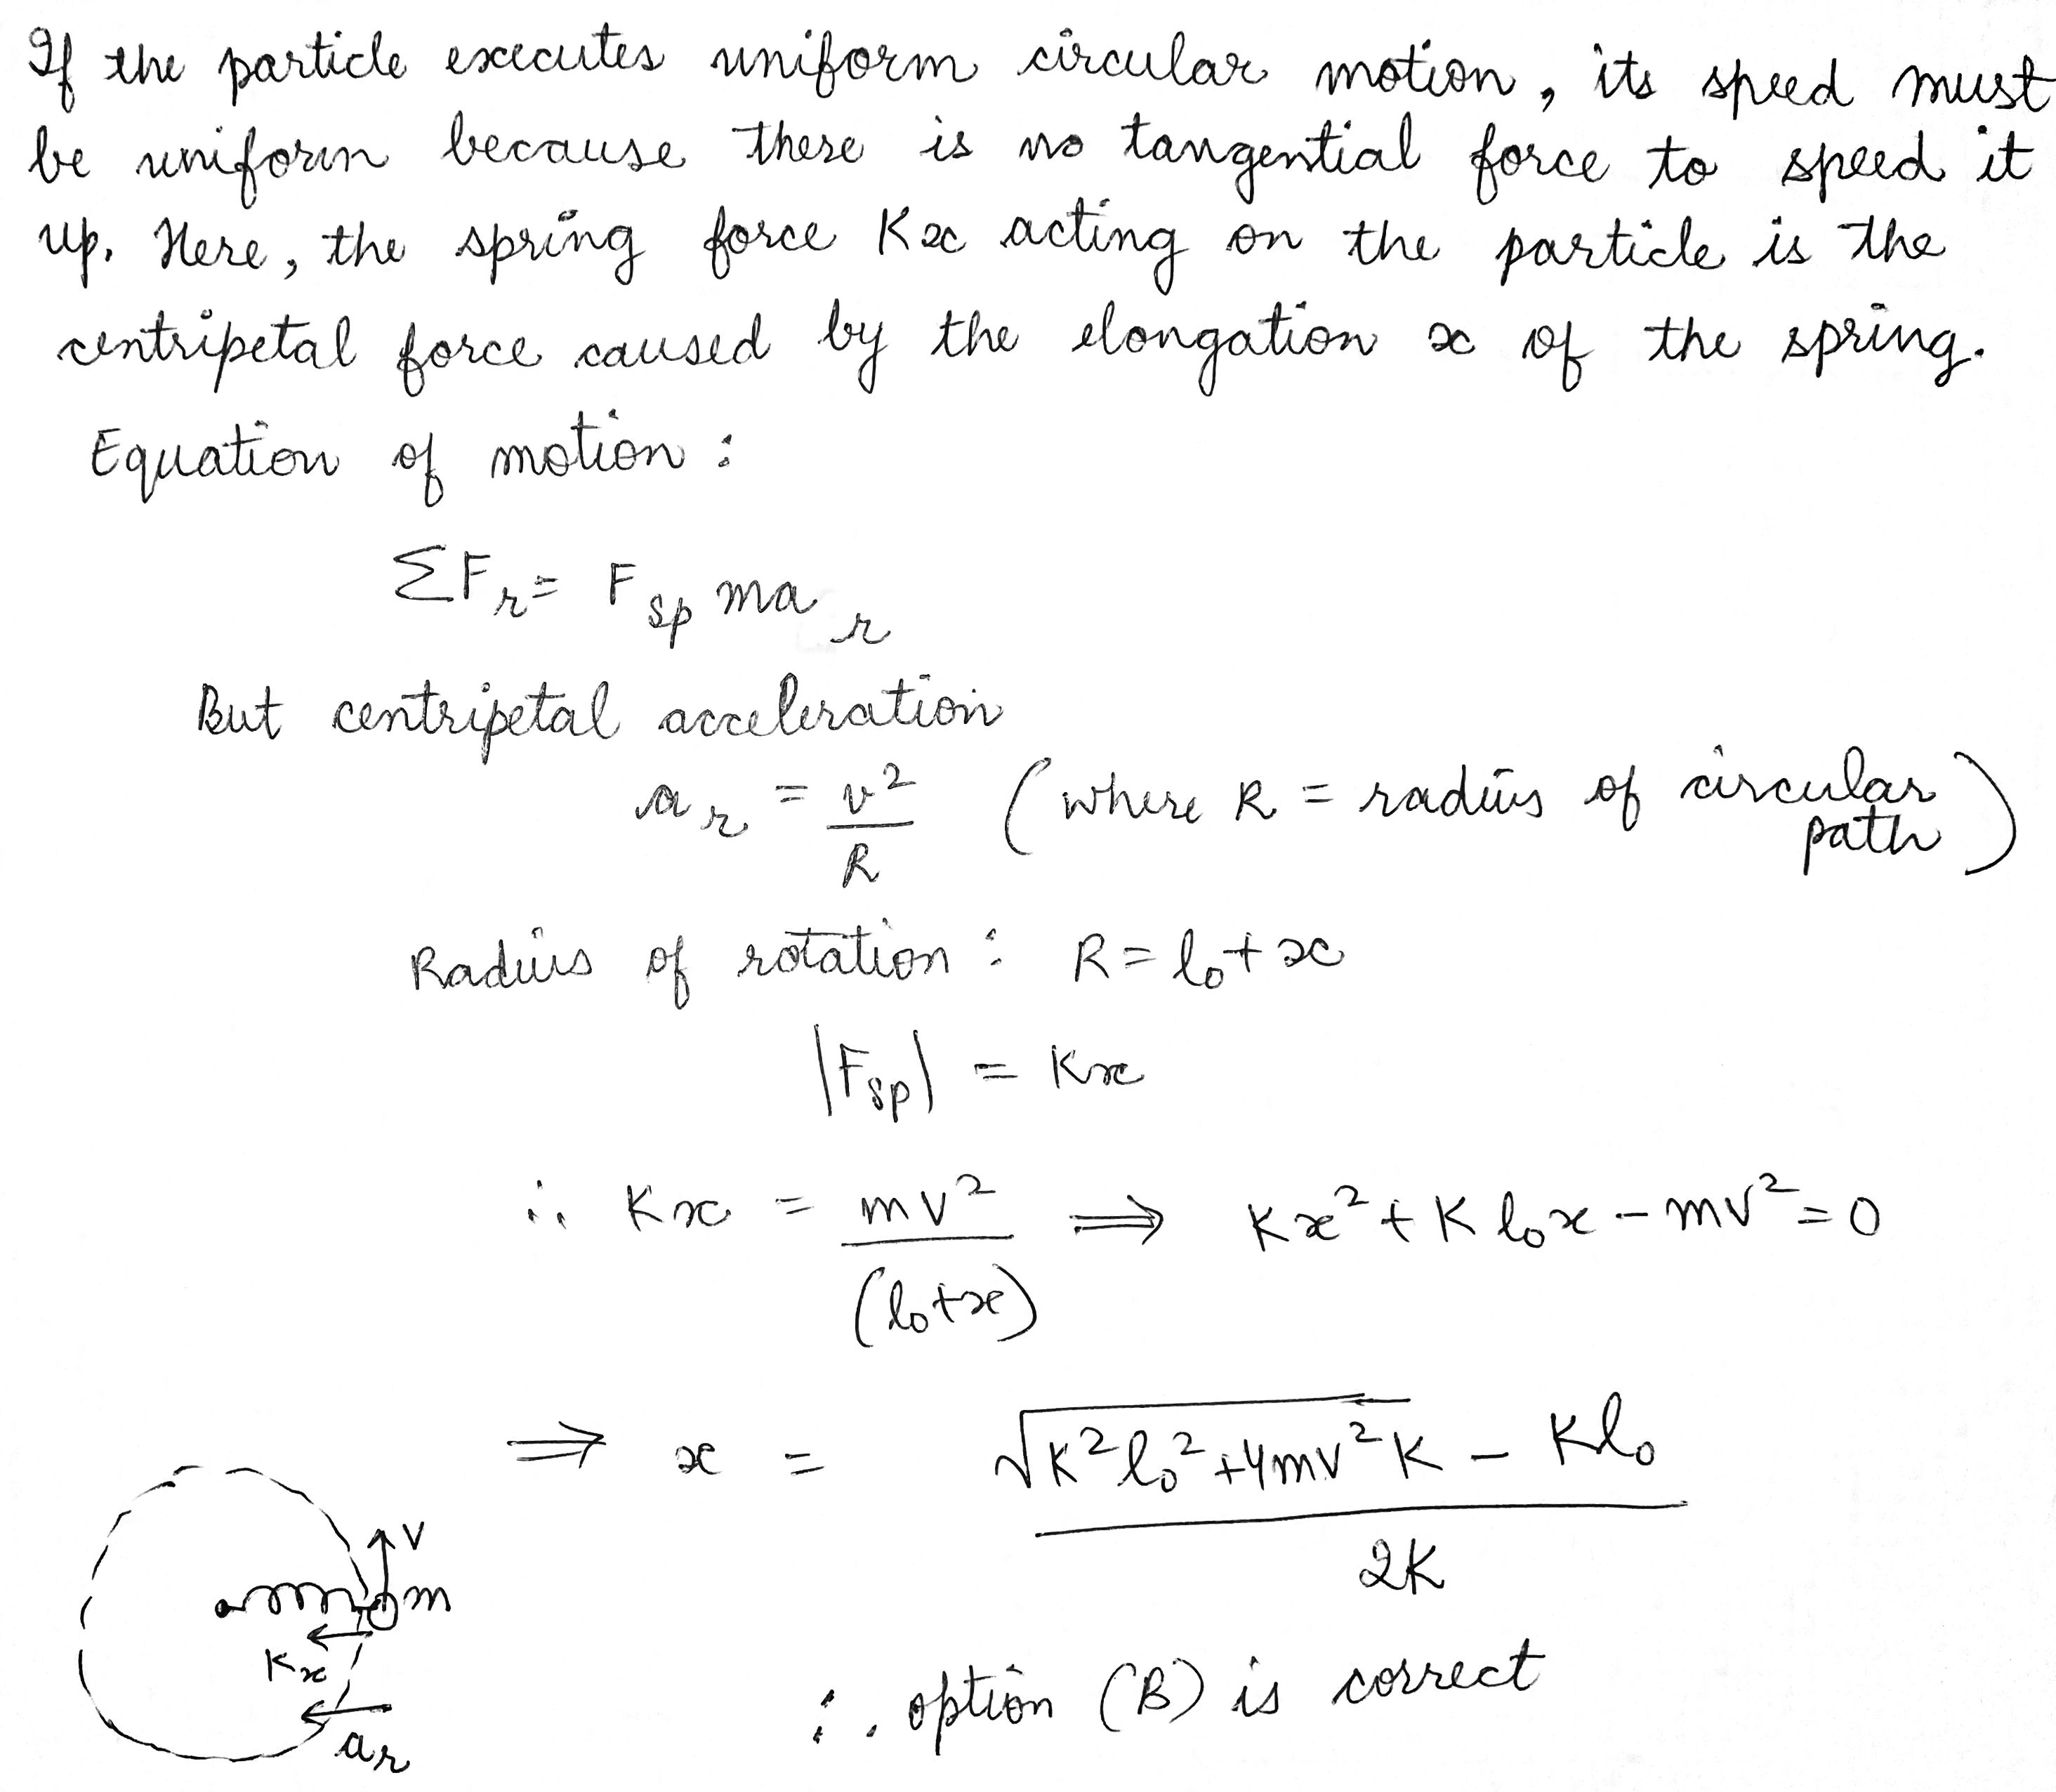 If the particle executes uniform circular motion, its speed must
be uniform because there is no tangential force to speed it
up. Here, the spring force Kx acting on the particle is the
centripetal force caused by the elongation x of the spring.
Equation of motion :
ΣF_r = F_sp ma_r
But centripetal acceleration
a_r = v²/R (where R = radius of circular path)
Radius of rotation : R = l₀+x
|F_sp| = Kx
∴ Kx = mv²/(l₀+x) ⟹ Kx² + K l₀x − mv² = 0
⟹ x = (√(K²l₀²+4mv²K) − Kl₀)/2K
V
m
Kx
a_r
∴ option (B) is correct